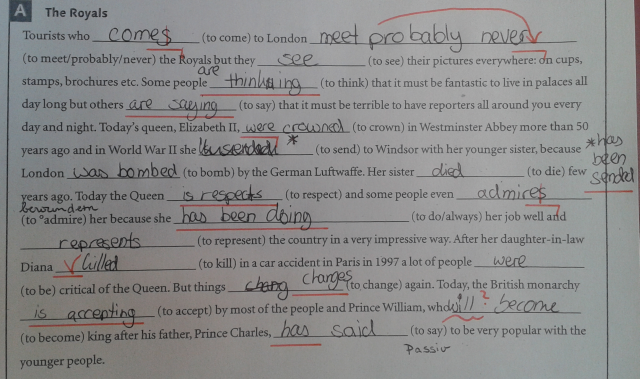 A The Royals
Tourists who comes (to come) to London meet probably never
(to meet/probably/never) the Royals but they see (to see) their pictures everywhere: on cups,
stamps, brochures etc. Some people are thinking (to think) that it must be fantastic to live in palaces all
day long but others are saying (to say) that it must be terrible to have reporters all around you every
day and night. Today's queen, Elizabeth II, were crowned (to crown) in Westminster Abbey more than 50
years ago and in World War II she * (to send) to Windsor with her younger sister, because
*has been sended
London was bombed (to bomb) by the German Luftwaffe. Her sister died (to die) few
years ago. Today the Queen is respects (to respect) and some people even admires
bewundern
(to °admire) her because she has been doing (to do/always) her job well and
represents (to represent) the country in a very impressive way. After her daughter-in-law
Diana killed (to kill) in a car accident in Paris in 1997 a lot of people were
(to be) critical of the Queen. But things changes (to change) again. Today, the British monarchy
is accepting (to accept) by most of the people and Prince William, who will ? become
(to become) king after his father, Prince Charles, has said (to say) to be very popular with the
Passiv
younger people.